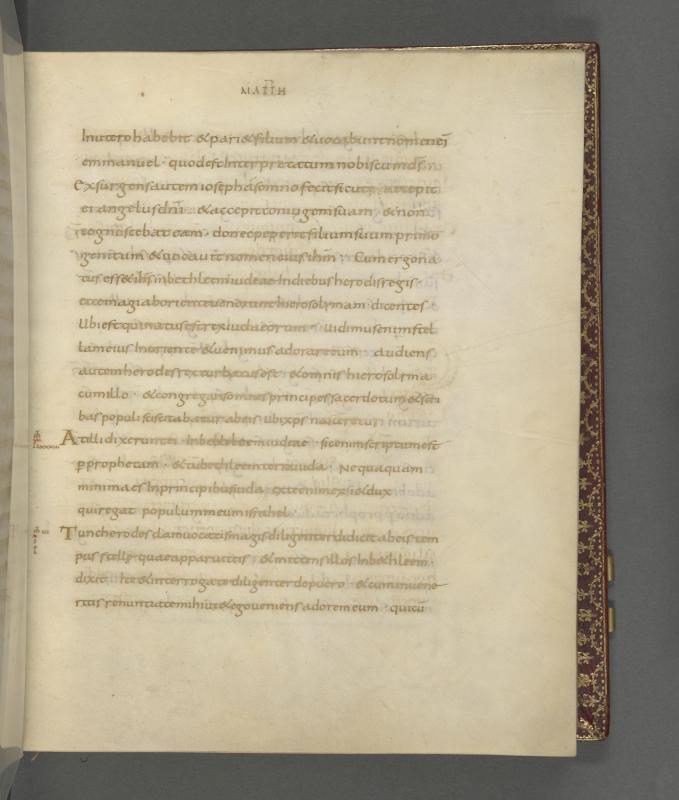 MATTH
In utero habebit & pari& filium & vocabunt nomen ei
emmanuel · quod est Interpretatum nobiscum ds̄
Exsurgens autem ioseph a somno fecit sicut praecepit
ei angelus dn̄i · & accepit coniugem suam · & non
cognoscebat eam · donec peperit filium suum primo
genitum & vocavit nomen eius ihm̄ · Cum ergo na
tus ess& ihs̄ in bethleem iudeae In diebus herodis regis ·
ecce magi ab oriente venerunt hierosolimam dicentes ·
Ubi est qui natus est rex iudaeorum · vidimus enim stel
lam eius In oriente & venimus adorare eum · audiens
autem herodes rex turbatus est · & omnis hierosolyma
cum illo · & congregans omnes principes sacerdotum & scri
bas populi sciscitabatur ab eis ubi xp̄s nasceretur
At illi dixerunt ei In bethleem iudeae · sic enim scriptum est
p prophetam · & tu bethleem terra iuda · Nequaquam
minima es In principibus iuda ex te enim exi& dux
qui regat populum meum israhel
Tunc herodes clam vocatis magis diligenter didicit ab eis tem
pus stellę quae apparuit eis · & mittens illos In bethleem ·
dixit · Ite & interrogate diligenter de puero · & cum invene
ritis renuntiate mihi ut & ego veniens adorem eum · qui cū